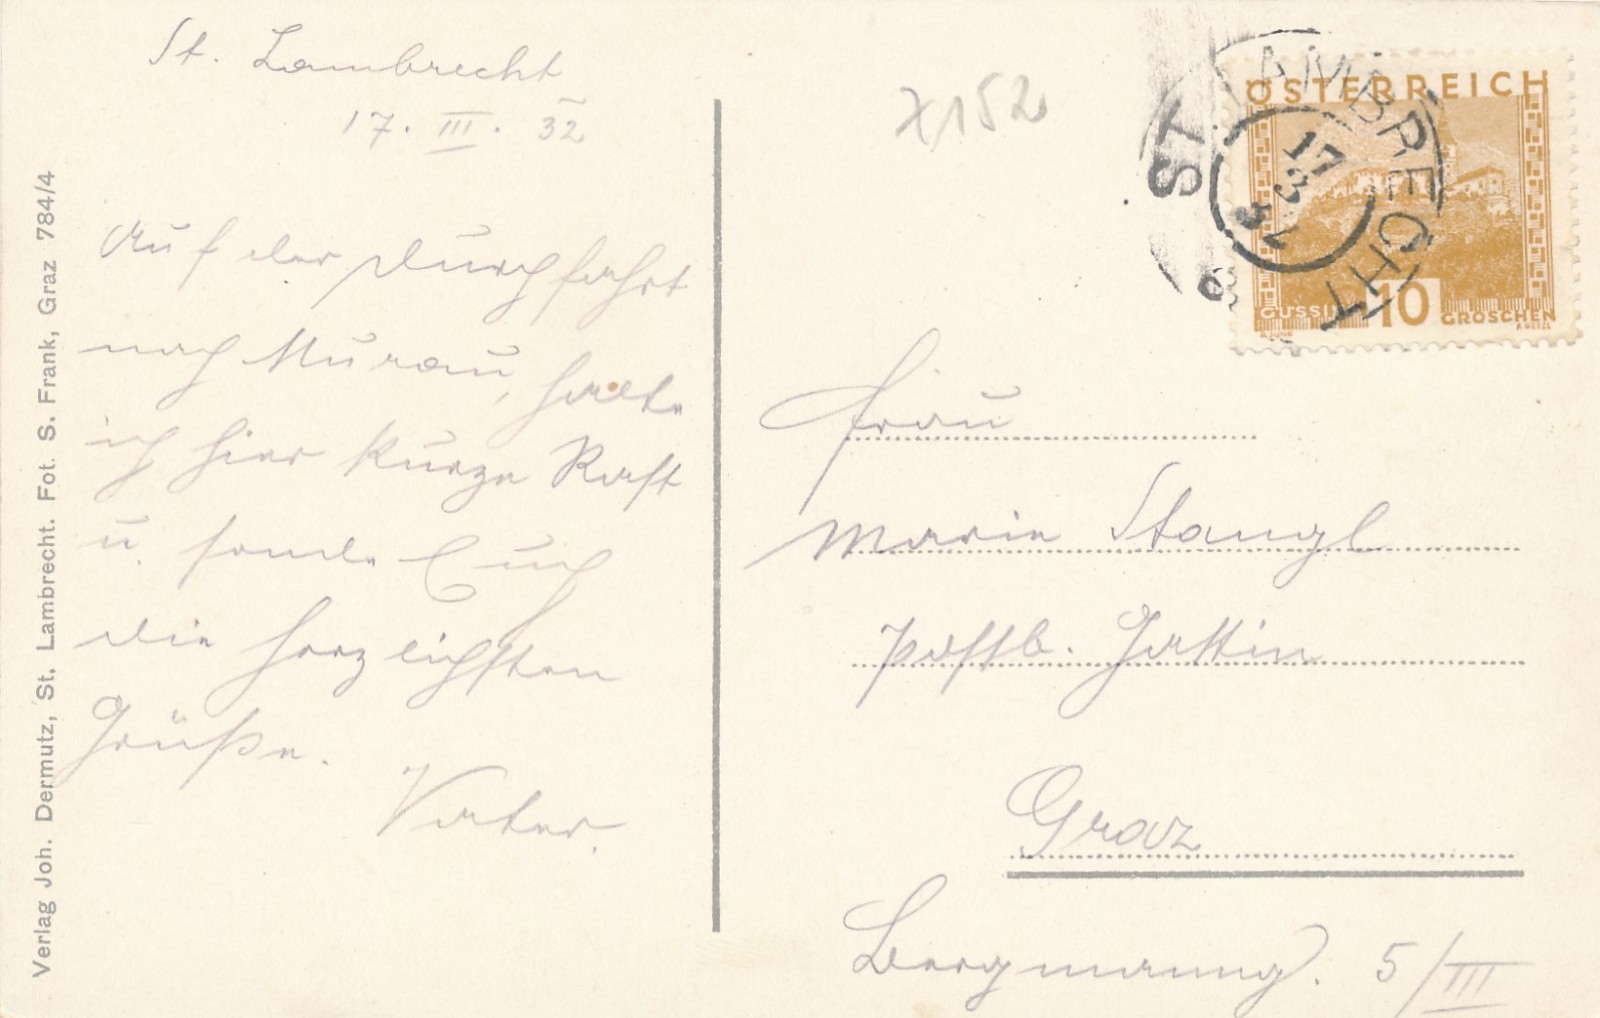 St. Lambrecht
17. III. 32
Auf der Durchfahrt
nach Murau, halte
ich hier kurze Rast
u. sende Euch
die herzlichsten
Grüße.
Vater.
Verlag Joh. Dermutz, St. Lambrecht. Fot. S. Frank, Graz 784/4
X152
ÖSTERREICH
GÜSSING 10 GROSCHEN
ST. LAMBRECHT
17
3
32
Frau
Marie Stangl
postb. Gattin
Graz
5/III